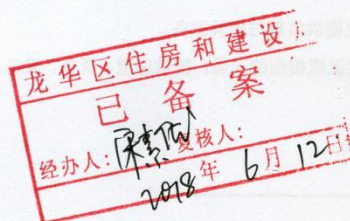 龙华区住房和建设
已备案
经办人： 复核人：
2018年6月12日